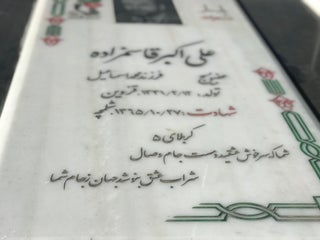 علی اکبر قاسمزاده
فرزند محمداسماعیل
تولد: ۱۳۴۱/۲/۱۳ قزوین
شهادت: ۱۳۶۵/۱۰/۲۷ شلمچه
کربلای ۵
شما که سرخوش و مست جام وصال
شراب عشق بنوشد جهان ز جام شما